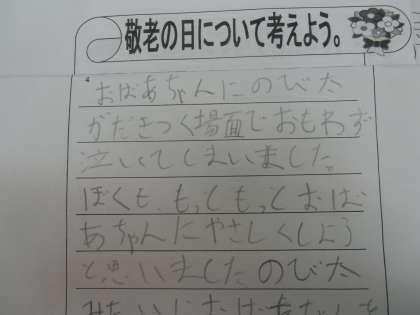 敬老の日について考えよう。
4
おばあちゃんにのび太
がだきつく場面でおもわず
泣いてしまいました。
ぼくも、もっともっとおば
あちゃんにやさしくしよう
と思いましたのび太
みたいにおばあちゃんを